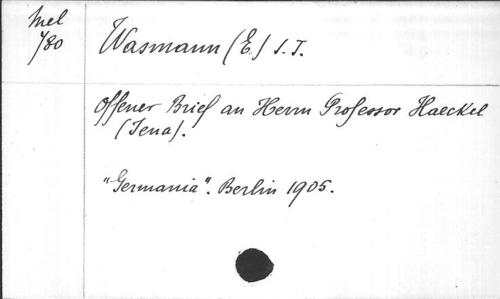 Mel
780
Wasmann (E.) S. J.
Offener Brief an Herrn Professor Haeckel
(Jena).
"Germania". Berlin 1905.